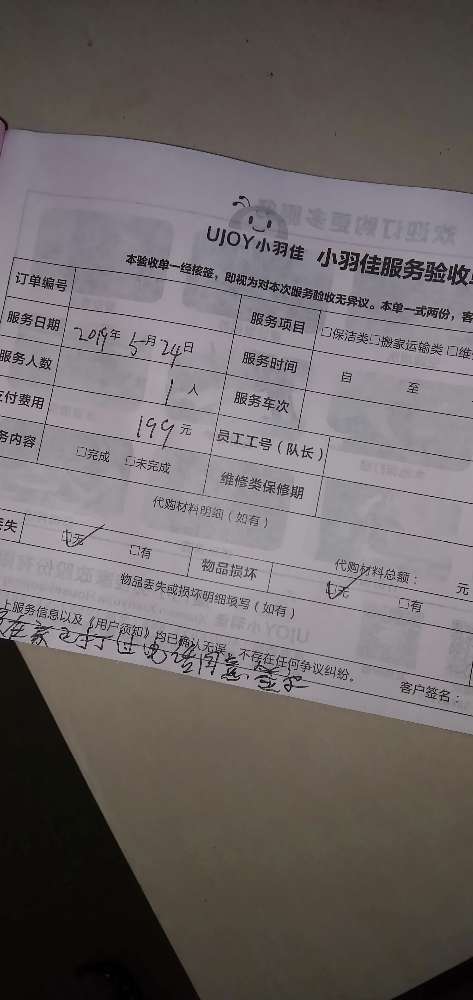 UJOY小羽佳 小羽佳服务验收
本验收单一经核签，即视为对本次服务验收无异议。本单一式两份，客
订单编号 服务项目 □保洁类□搬家运输类 □维
服务日期 2019年 5月 24日 服务时间 自 至
服务人数 1 人 服务车次
付费用 199 元 员工工号（队长）
务内容 □完成 □未完成 维修类保修期
代购材料明细（如有）
代购材料总额： 元
丢失 □无 □有 物品损坏 □无 □有
物品丢失或损坏明细填写（如有）
上服务信息以及《用户须知》均已确认无误，不存在任何争议纠纷。
客户签名：